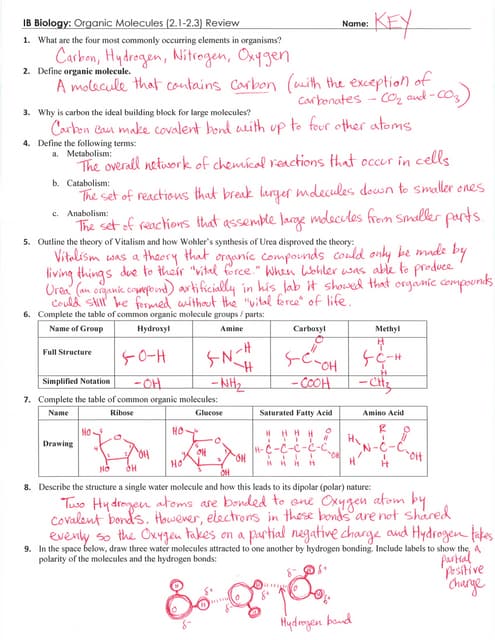 IB Biology: Organic Molecules (2.1-2.3) Review Name: KEY
1. What are the four most commonly occurring elements in organisms?
Carbon, Hydrogen, Nitrogen, Oxygen
2. Define organic molecule.
A molecule that contains carbon (with the exception of
carbonates - CO2 and -CO3)
3. Why is carbon the ideal building block for large molecules?
Carbon can make covalent bond with up to four other atoms
4. Define the following terms:
a. Metabolism:
The overall network of chemical reactions that occur in cells
b. Catabolism:
The set of reactions that break larger molecules down to smaller ones
c. Anabolism:
The set of reactions that assemble large molecules from smaller parts.
5. Outline the theory of Vitalism and how Wohler's synthesis of Urea disproved the theory:
Vitalism was a theory that organic compounds could only be made by
living things due to their "vital force." When Wohler was able to produce
Urea (an organic compound) artificially in his lab it showed that organic compounds
could still be formed without the "vital force" of life.
6. Complete the table of common organic molecule groups / parts:
Name of Group Hydroxyl Amine Carboxyl Methyl
Full Structure O-H N H H C O OH H C-H H
Simplified Notation -OH -NH2 -COOH -CH3
7. Complete the table of common organic molecules:
Name Ribose Glucose Saturated Fatty Acid Amino Acid
Drawing
HO O OH HO OH
HO O OH OH HO OH
H H H H O
H-C-C-C-C-C OH
H H H H
R O
H N-C-C OH
H H
8. Describe the structure a single water molecule and how this leads to its dipolar (polar) nature:
Two Hydrogen atoms are bonded to one Oxygen atom by
covalent bonds. However, electrons in these bonds are not shared
evenly so the Oxygen takes on a partial negative charge and Hydrogen takes
9. In the space below, draw three water molecules attracted to one another by hydrogen bonding. Include labels to show the
polarity of the molecules and the hydrogen bonds:
A partial
positive
charge
H O H δ+ δ-
O H δ+
δ- O H δ+
Hydrogen bond